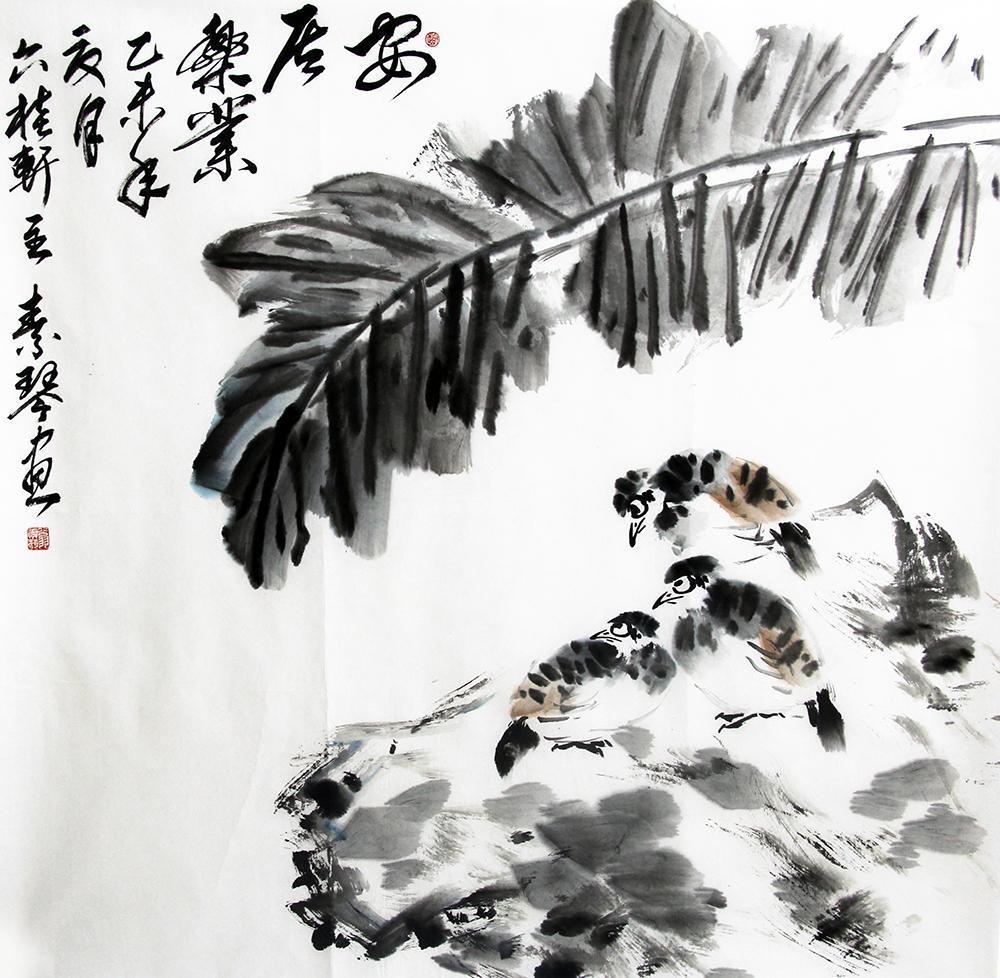 安
居
樂業
乙未年
亥月
六桂軒主 素琴画